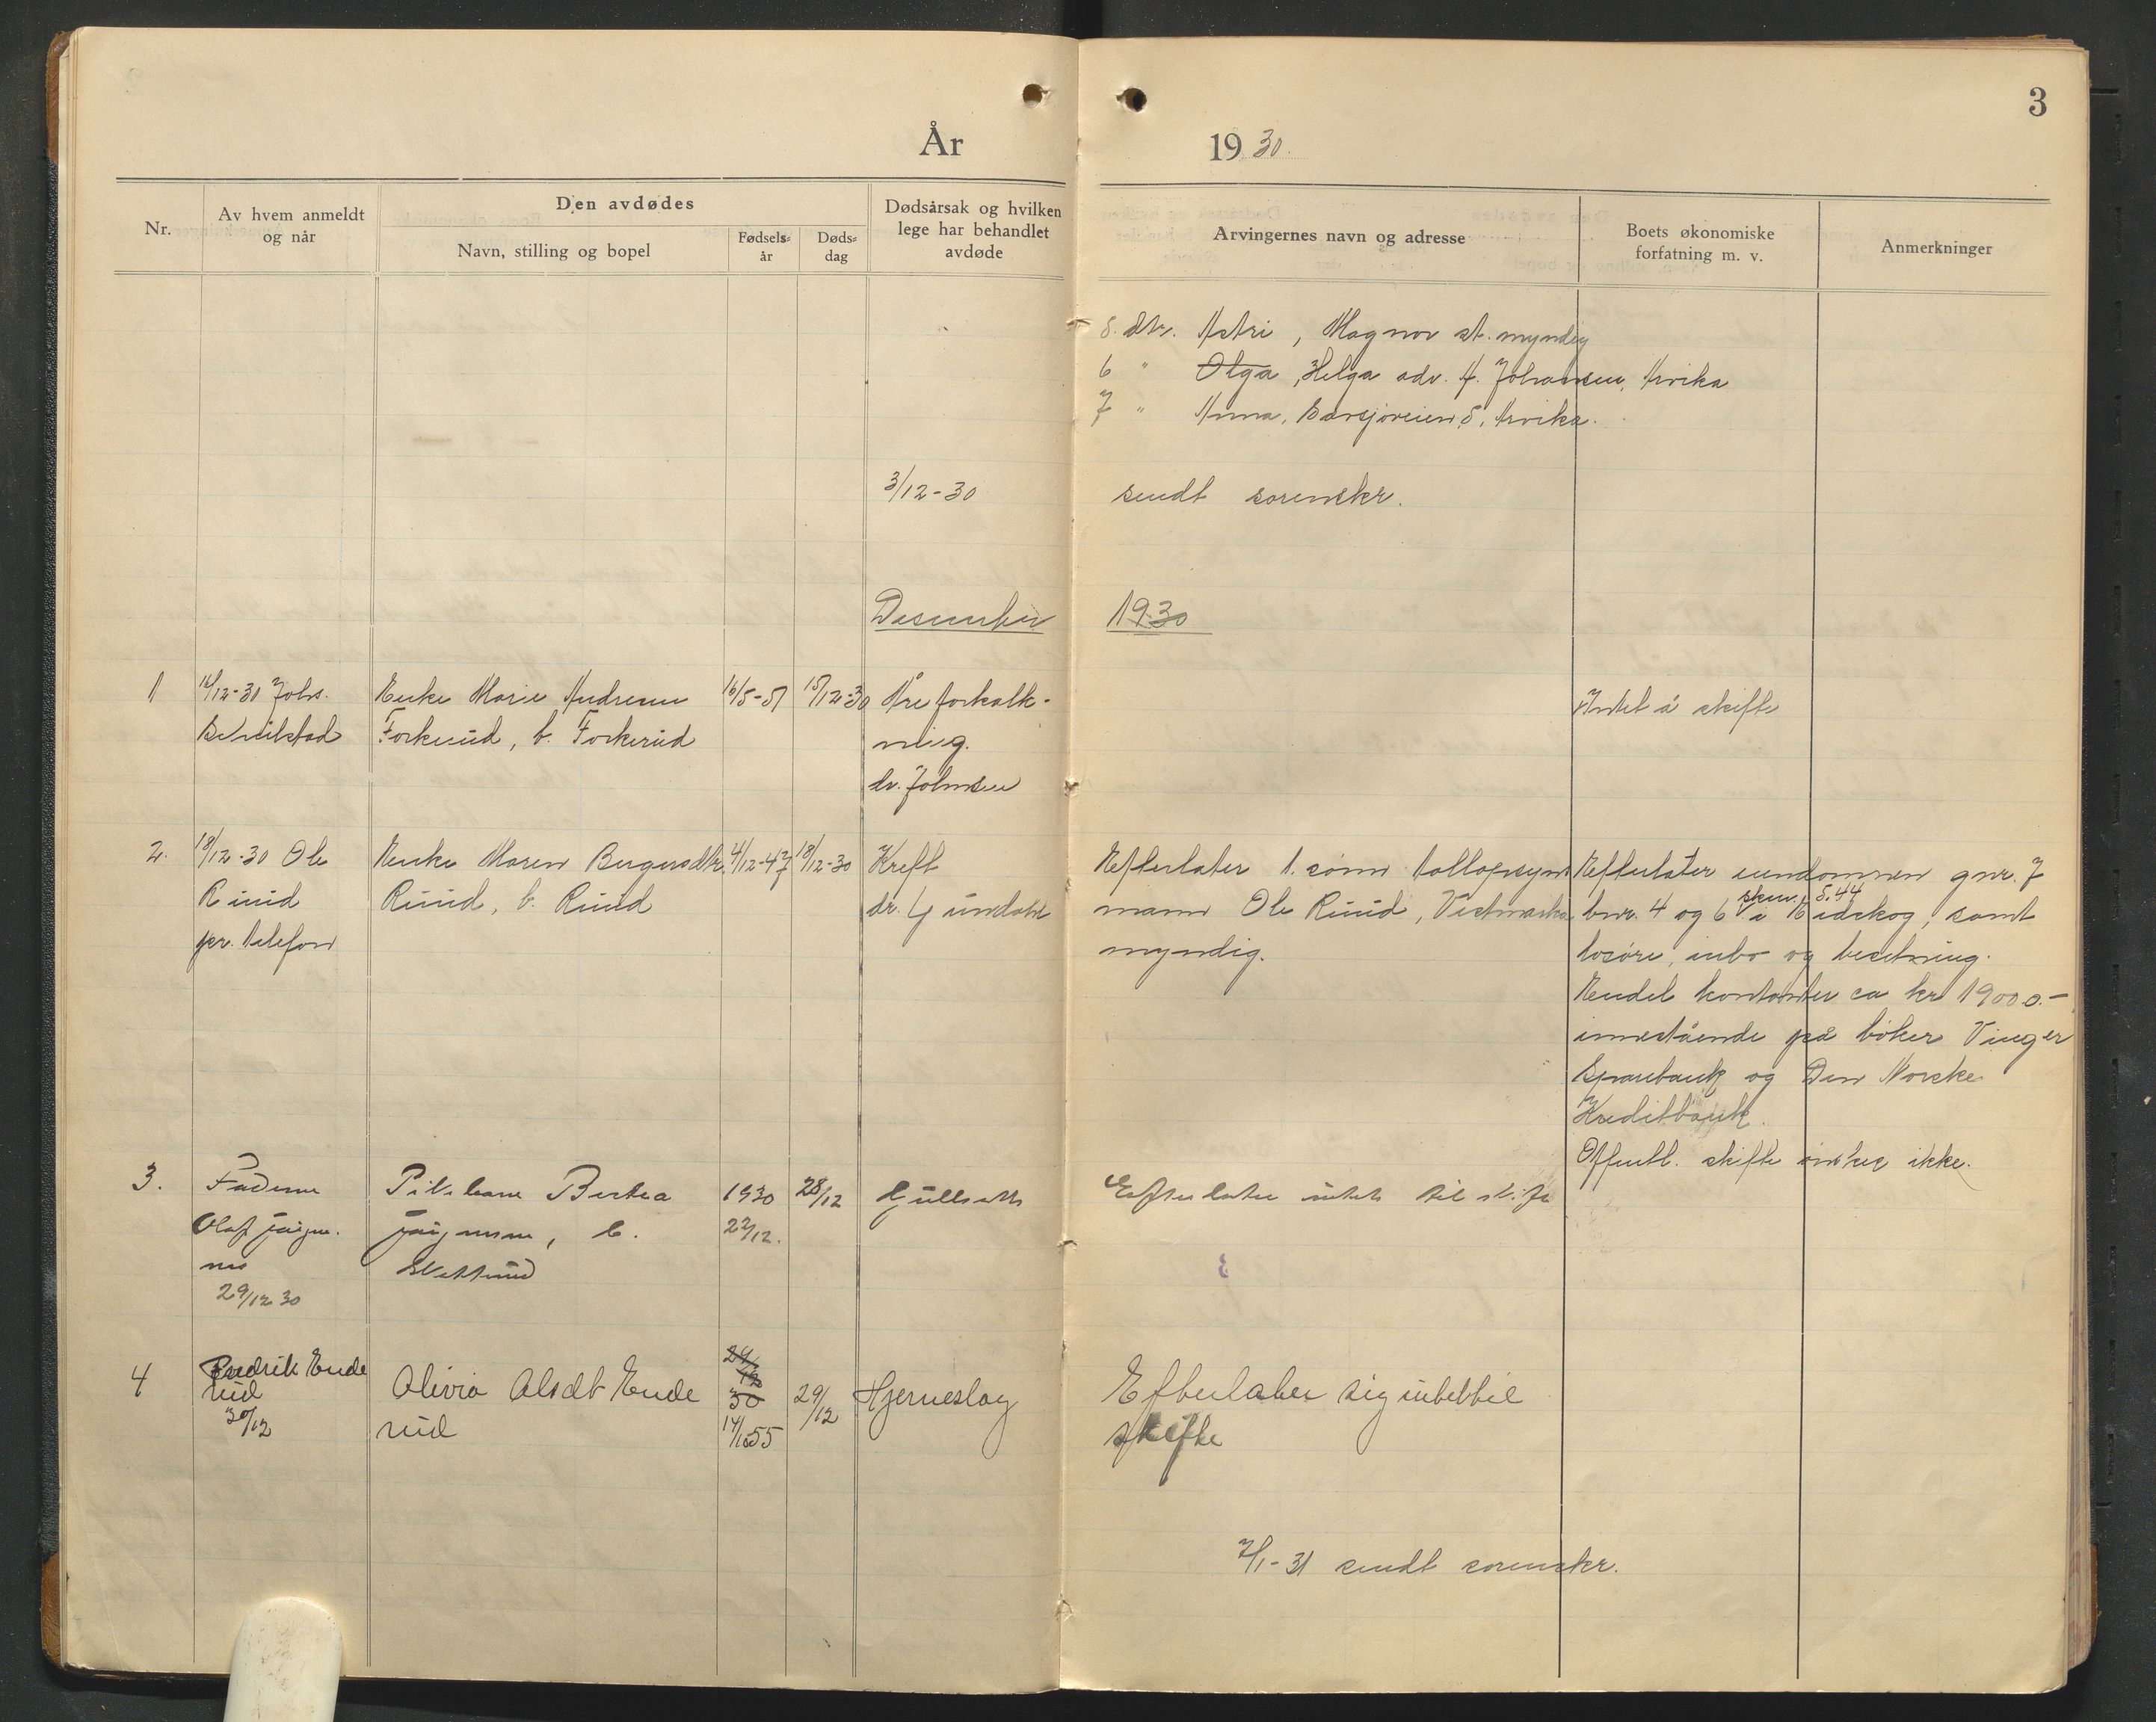 3
År 1930.
Nr.
Av hvem anmeldt
og når
Den avdødes
Navn, stilling og bopel
Fødsels-
år
Døds-
dag
Dødsårsak og hvilken
lege har behandlet
avdøde
Arvingernes navn og adresse
Boets økonomiske
forfatning m. v.
Anmerkninger
5. dtr. Astri, Magnor st. myndig
6 " Olga, Helga adr. A. Johansen, Arvika
7 " Anna, 5, Arvika.
3/12-30 sendt sorenskr.
Desember 1930
1
16/12-30 Johs.
Enke Marie Andresen
Forkerud, b. Forkerud
16/5-51
15/12-30
Åreforkalk-
ning.
dr. Johnsen
Intet å skifte
2.
18/12-30 Ole
Ruud
pr. telefon
Enke Maren Bergersdtr.
Ruud, b. Ruud
4/12-47
18/12-30
Kreft
dr.
Efterlater 1. sønn tollopsyns
mann Ole Ruud, Vestmarka
myndig.
Efterlater eiendommen gnr. 7
bnr. 4 og 6 i Eidskog, samt
skyn. 5.44
løsøre, inbo og besetning.
Endel kontanter ca kr 19000.-
innestående på bøker Vinger
Sparebank og Den Norske
Kreditbank.
Offentl. skifte ønskes ikke.
3.
Faderen
Olaf
29/12 30
Pikebarn Bertea
b.
1930
22/12.
28/12
Gullsott
Efterlater intet til skifte
4
Fredrik Ende
rud
30/12
Olivia Alsdt Ende
rud
24/
12
30
14/10 55
29/12
Hjerneslag
Efterlater sig intettil
skifte
7/1-31 sendt sorenskr.